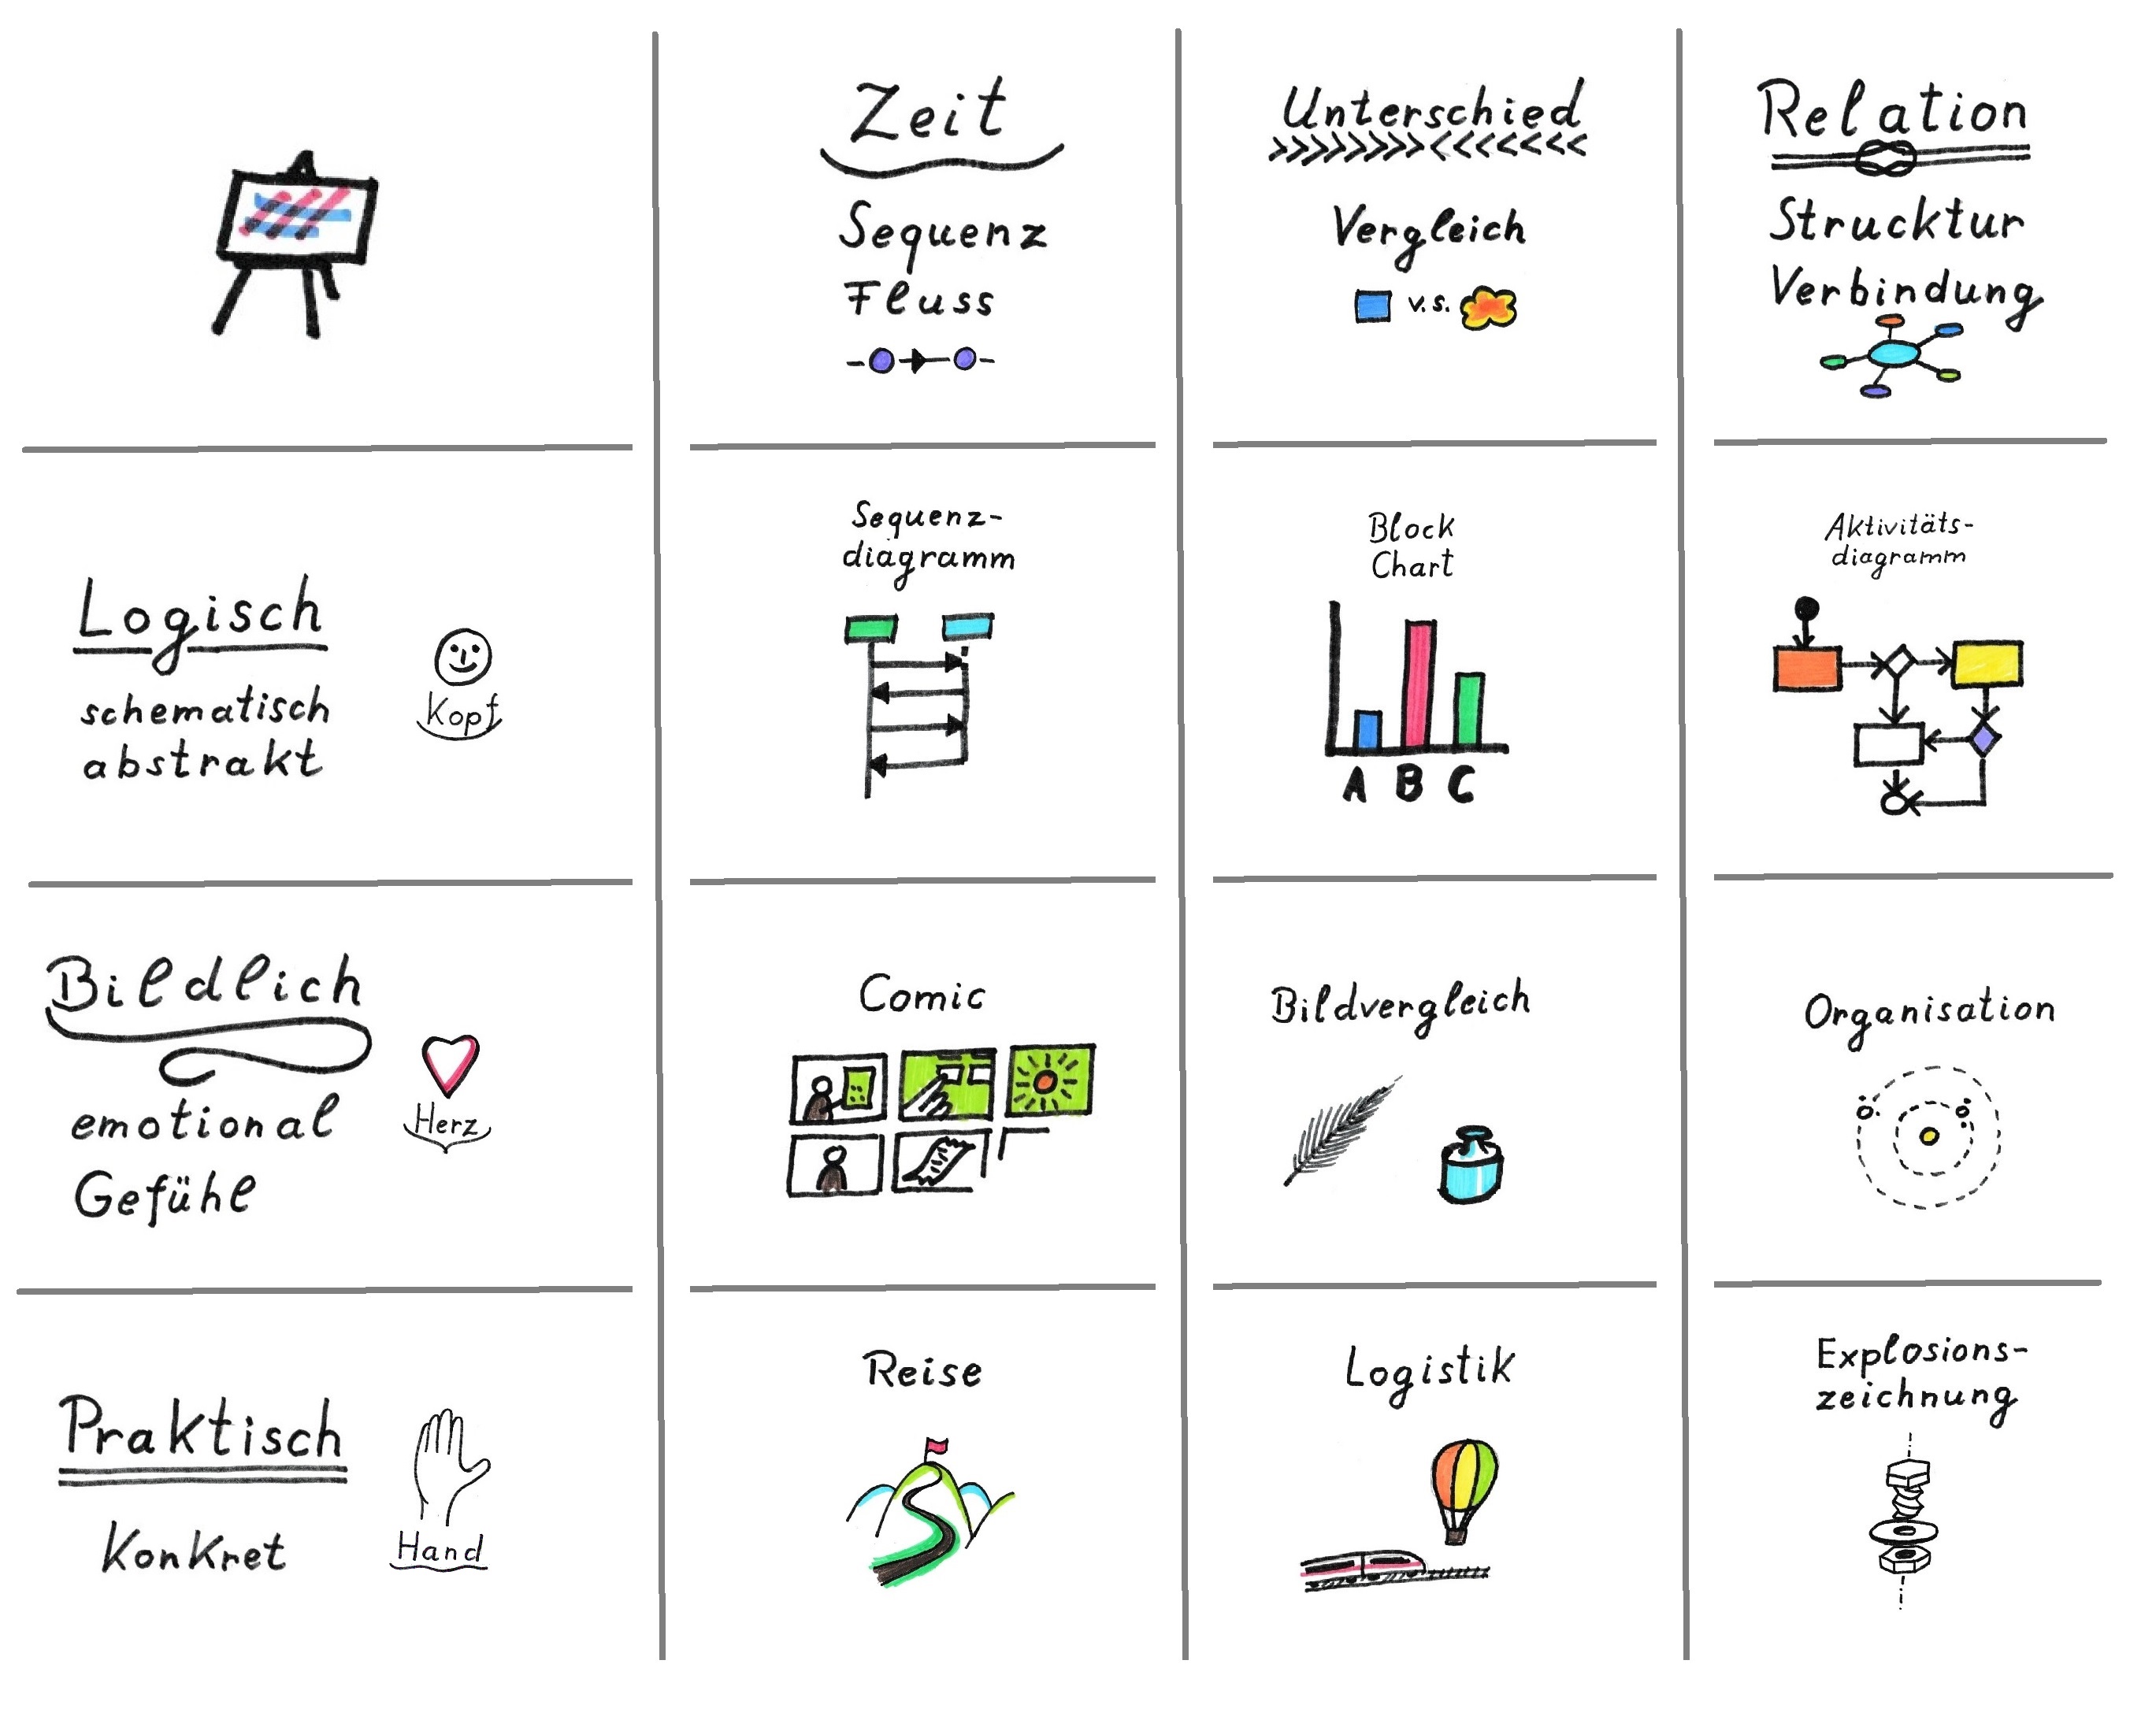 Zeit
Sequenz
Fluss
Unterschied
Vergleich
v.s.
Relation
Strucktur
Verbindung
Logisch
schematisch
abstrakt
Kopf
Sequenz-
diagramm
Block
Chart
A B C
Aktivitäts-
diagramm
Bildlich
emotional
Gefühl
Herz
Comic
Bildvergleich
Organisation
Praktisch
Konkret
Hand
Reise
Logistik
Explosions-
zeichnung